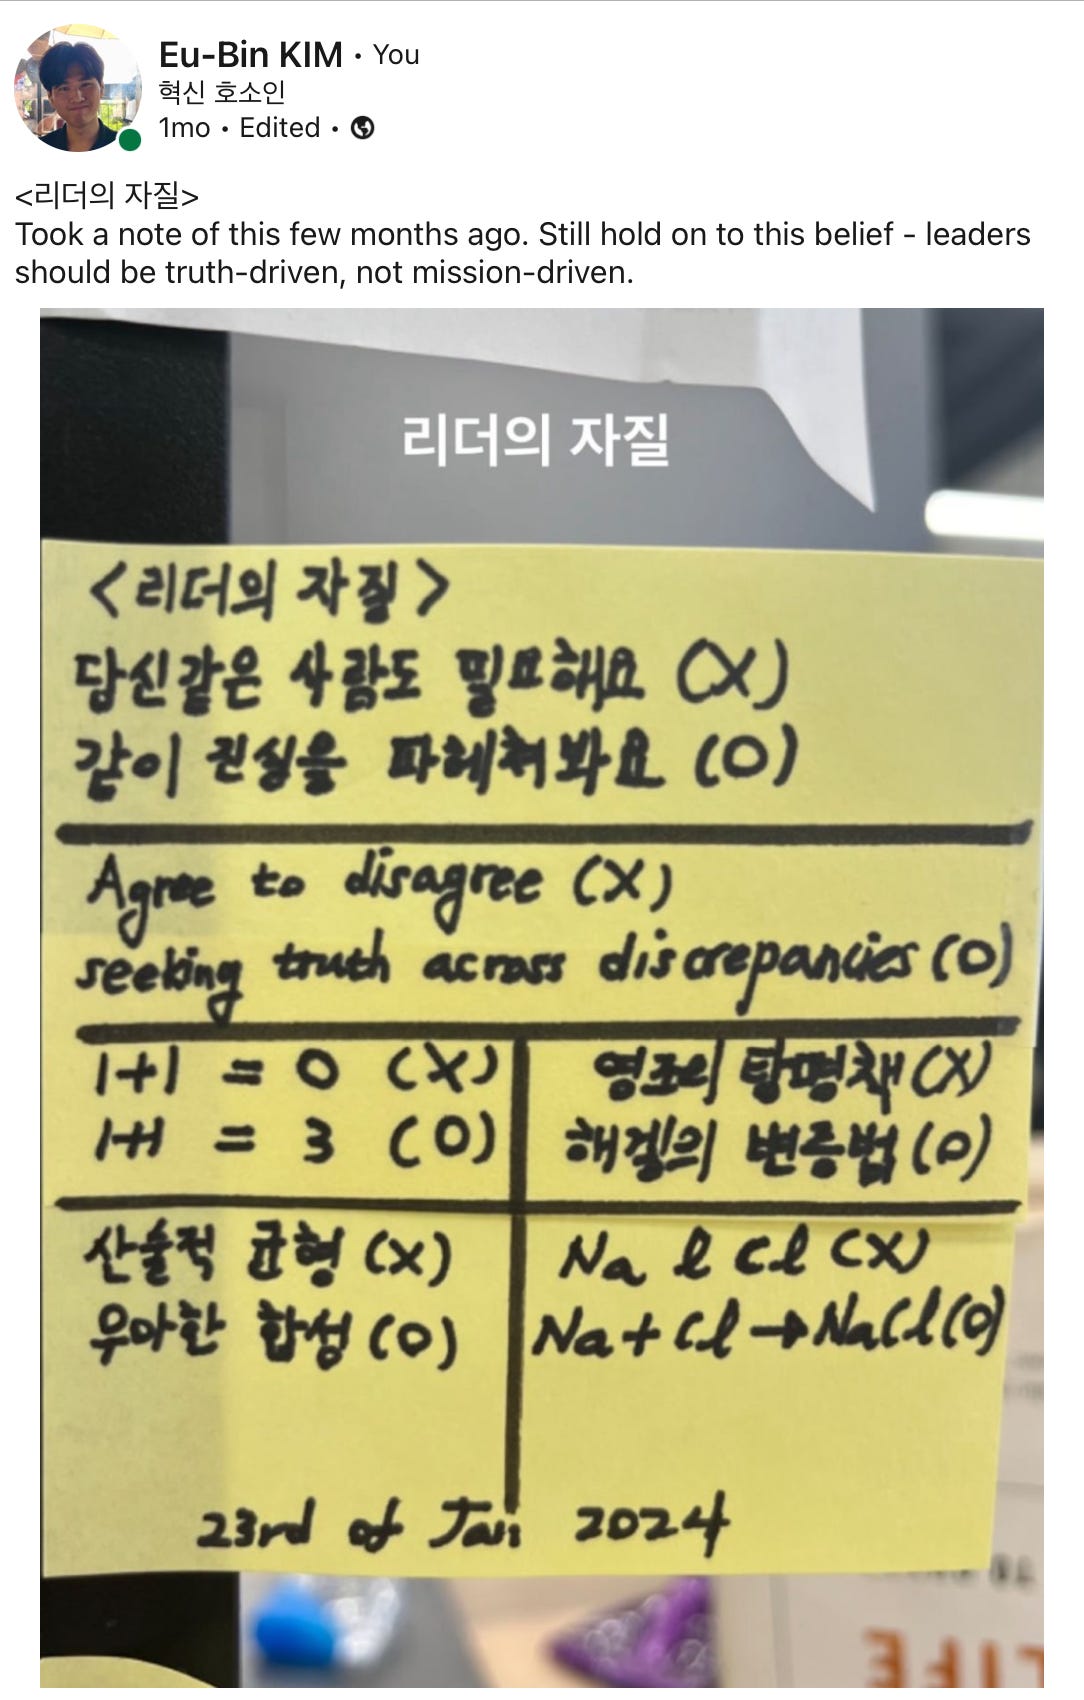 Eu-Bin KIM • You
혁신 호소인
1mo • Edited •
<리더의 자질>
Took a note of this few months ago. Still hold on to this belief - leaders
should be truth-driven, not mission-driven.
리더의 자질
<리더의 자질>
당신같은 사람도 필요해요 (X)
같이 진실을 파헤쳐봐요 (O)
Agree to disagree (X)
seeking truth across discrepancies (O)
1+1 = 0 (X)
1+1 = 3 (O)
영조의 탕평책 (X)
헤겔의 변증법 (O)
산술적 균형 (X)
우아한 합성 (O)
Na | Cl (X)
Na + Cl → NaCl (O)
23rd of Jan 2024
LIFE